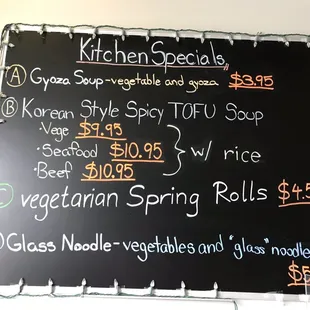 Kitchen Specials
A Gyoza Soup - vegetable and gyoza $3.95
B Korean Style Spicy TOFU Soup
• Vege $9.95
• Seafood $10.95 w/ rice
• Beef $10.95
C vegetarian Spring Rolls $4.5
Glass Noodle - vegetables and "glass" noodle
$5